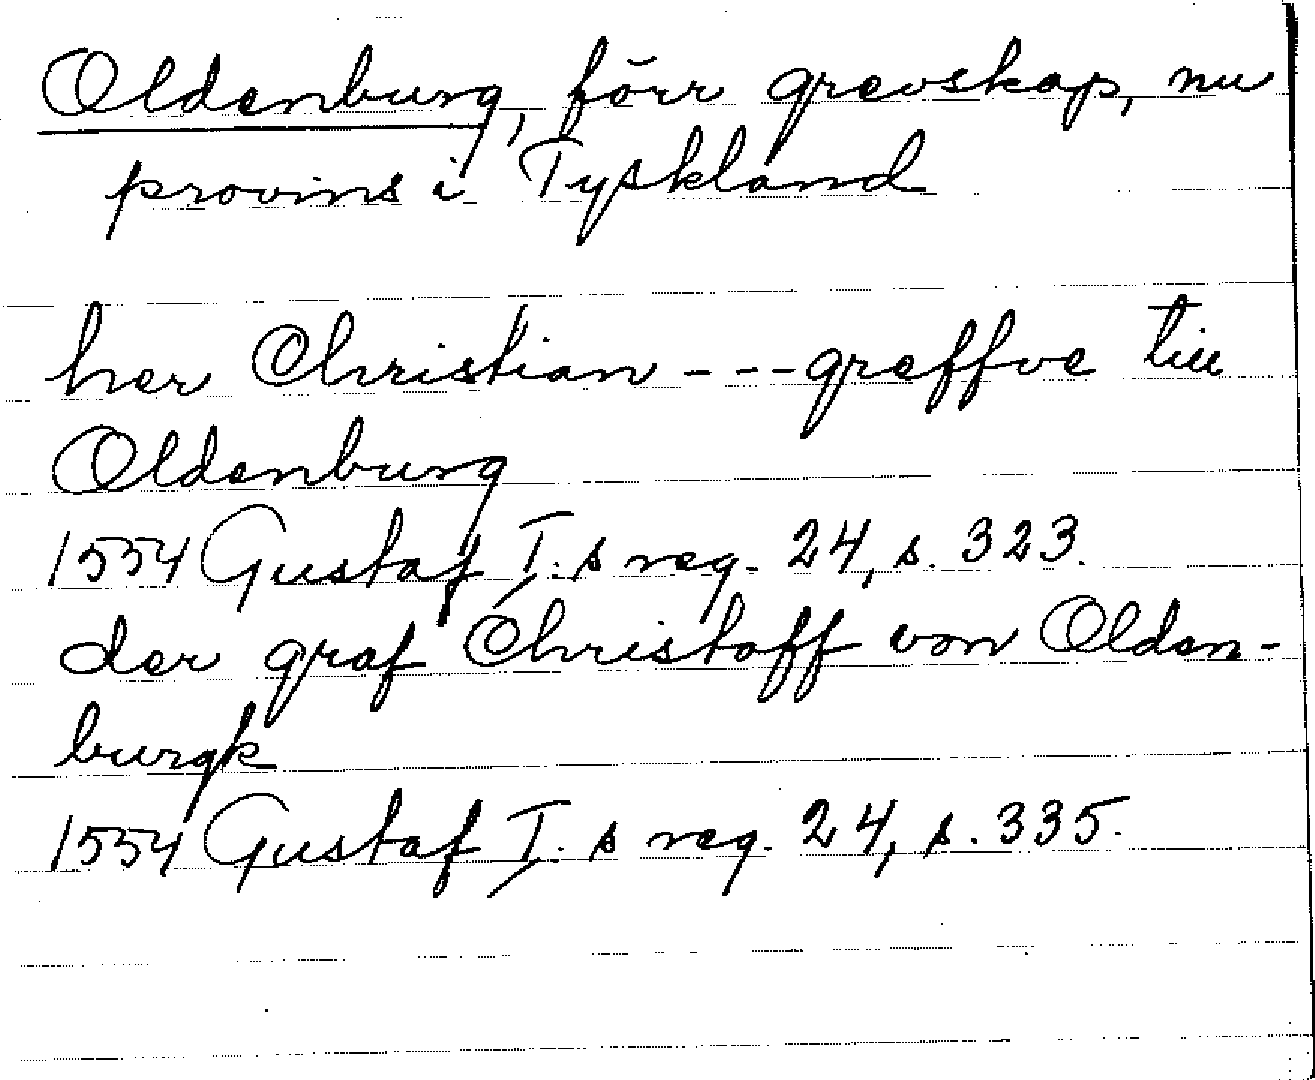 Oldenburg, förr grevskap, nu
provins i Tyskland
her Christian - - - greffve till
Oldenburg
1554 Gustaf I.s reg. 24, s. 323.
der graf Christoff von Olden-
burgk
1554 Gustaf I.s reg. 24, s. 335.